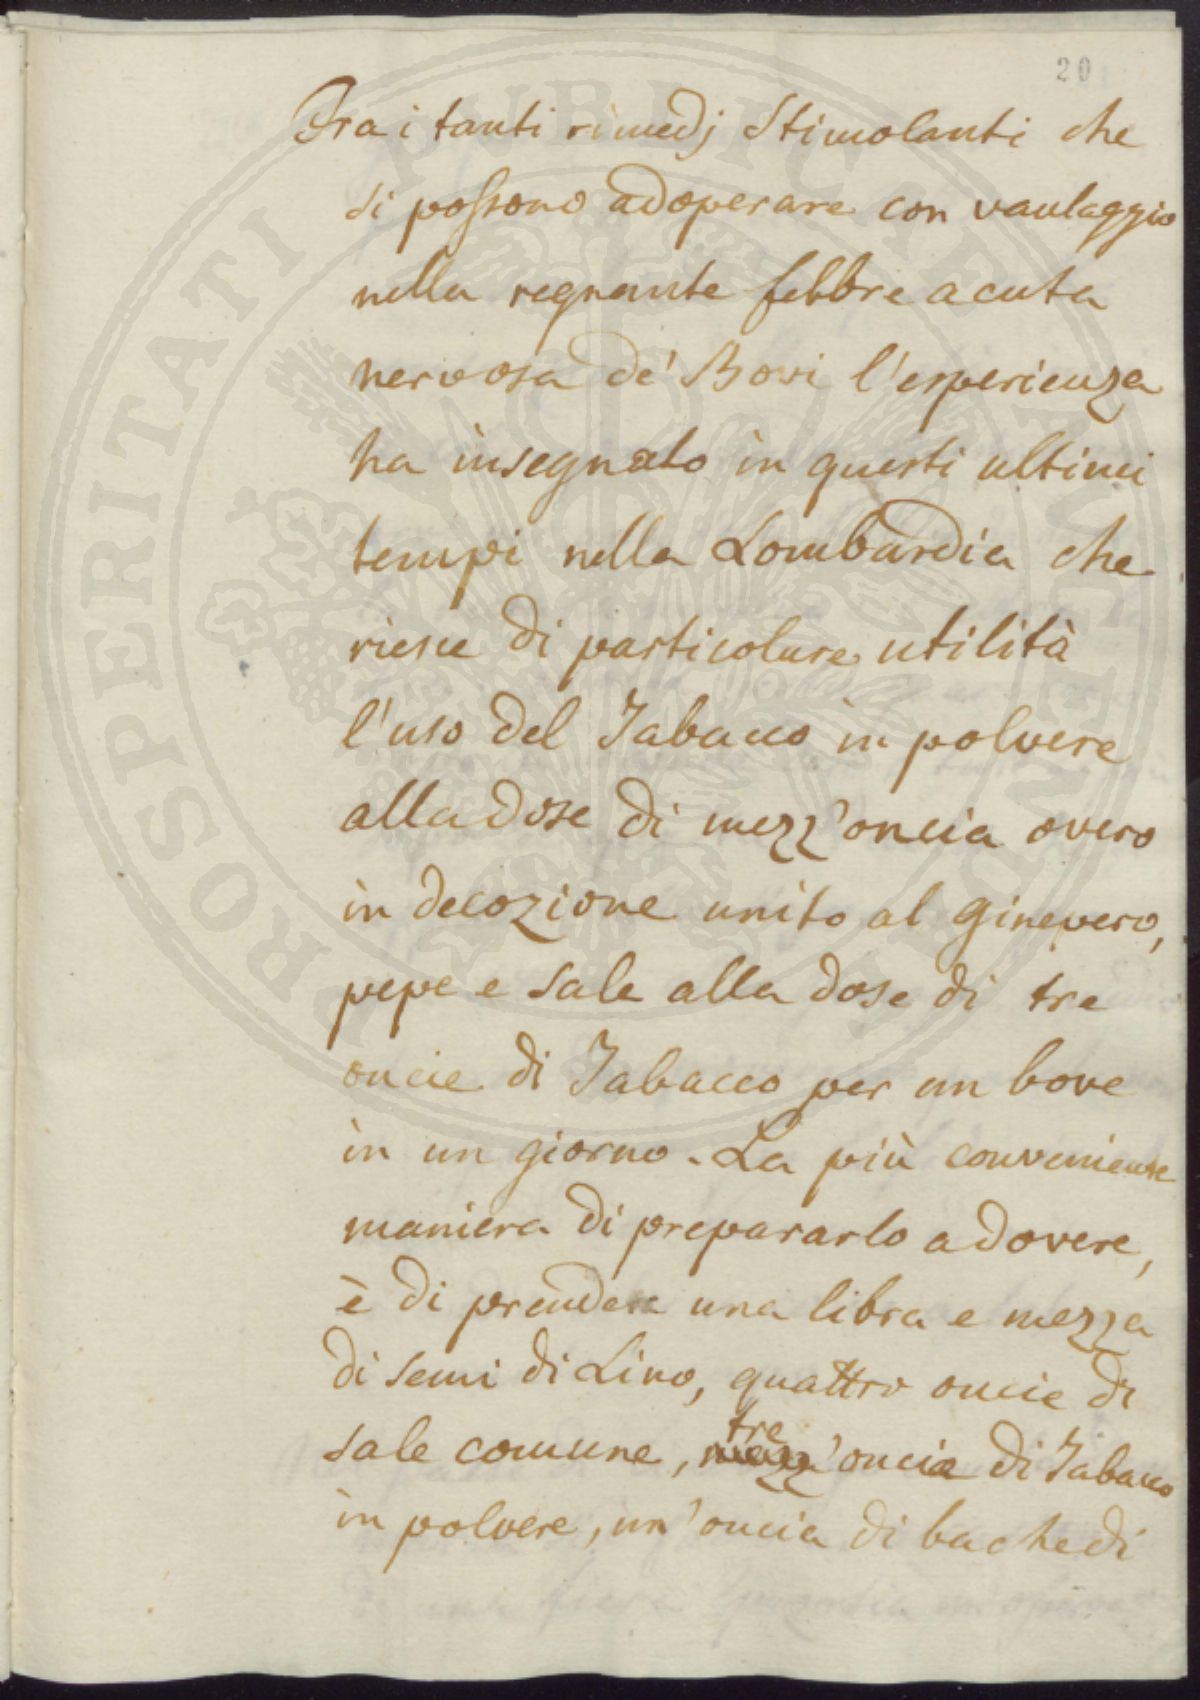 20
Fra i tanti rimedj stimolanti che
si possono adoperare con vantaggio
nella regnante febbre acuta
nervosa de' Bovi l'esperienza
ha insegnato in questi ultimi
tempi nella Lombardia che
riesce di particolare utilità
l'uso del Tabacco in polvere
alla dose di mezz'oncia overo
in decozione unito al ginepero,
pepe e sale alla dose di tre
oncie di Tabacco per un bove
in un giorno. La più conveniente
maniera di prepararlo a dovere,
è di prendere una libra e mezza
di semi di Lino, quattro oncie di
tre
sale comune, mezz'oncia di Tabacco
in polvere, un'oncia di bache di
PROSPERITATI PUBLICAE AUGENDAE